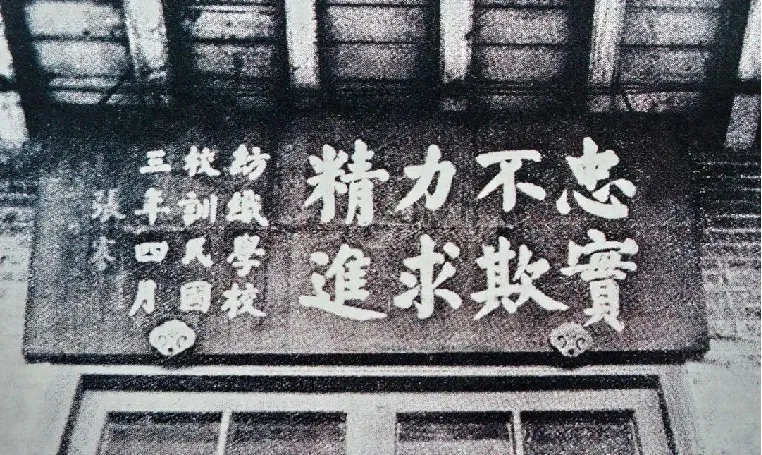 忠實
不欺
力求
精進
紡織學校
校訓民國
三年四月
張